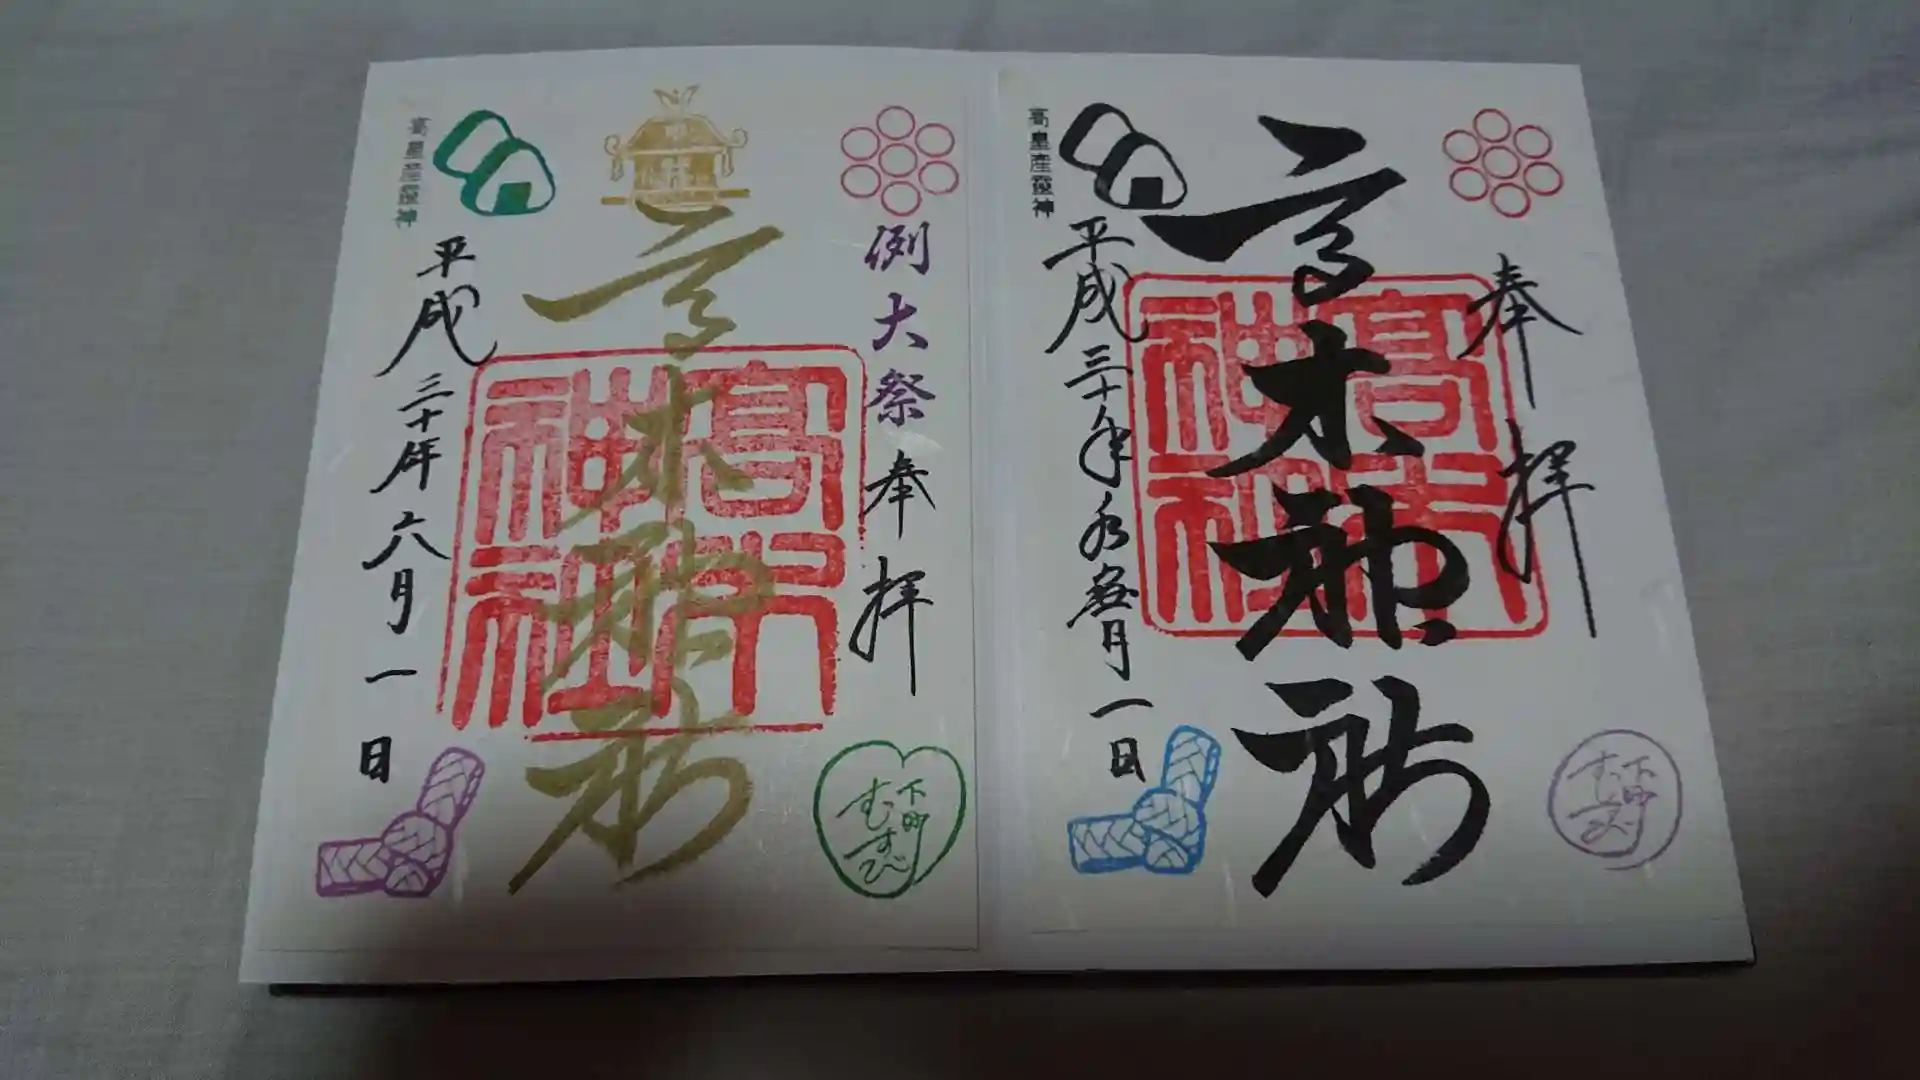 奉拝
高木神社
高木神社
平成三十年水無月一日
高皇産霊神
下町
むすび
例大祭 奉拝
高木神社
高木神社
平成三十年六月一日
高皇産霊神
下町
むすび